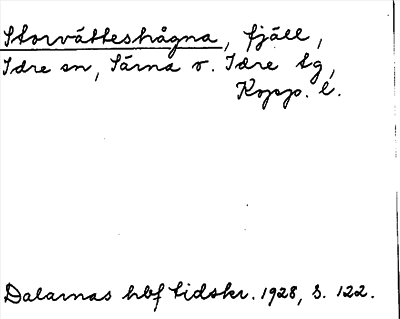 Storvätteshågna, fjäll,
Idre sn, Särna o. Idre tg,
Kopp. l.
Dalarnas hbf tidskr. 1928, s. 122.